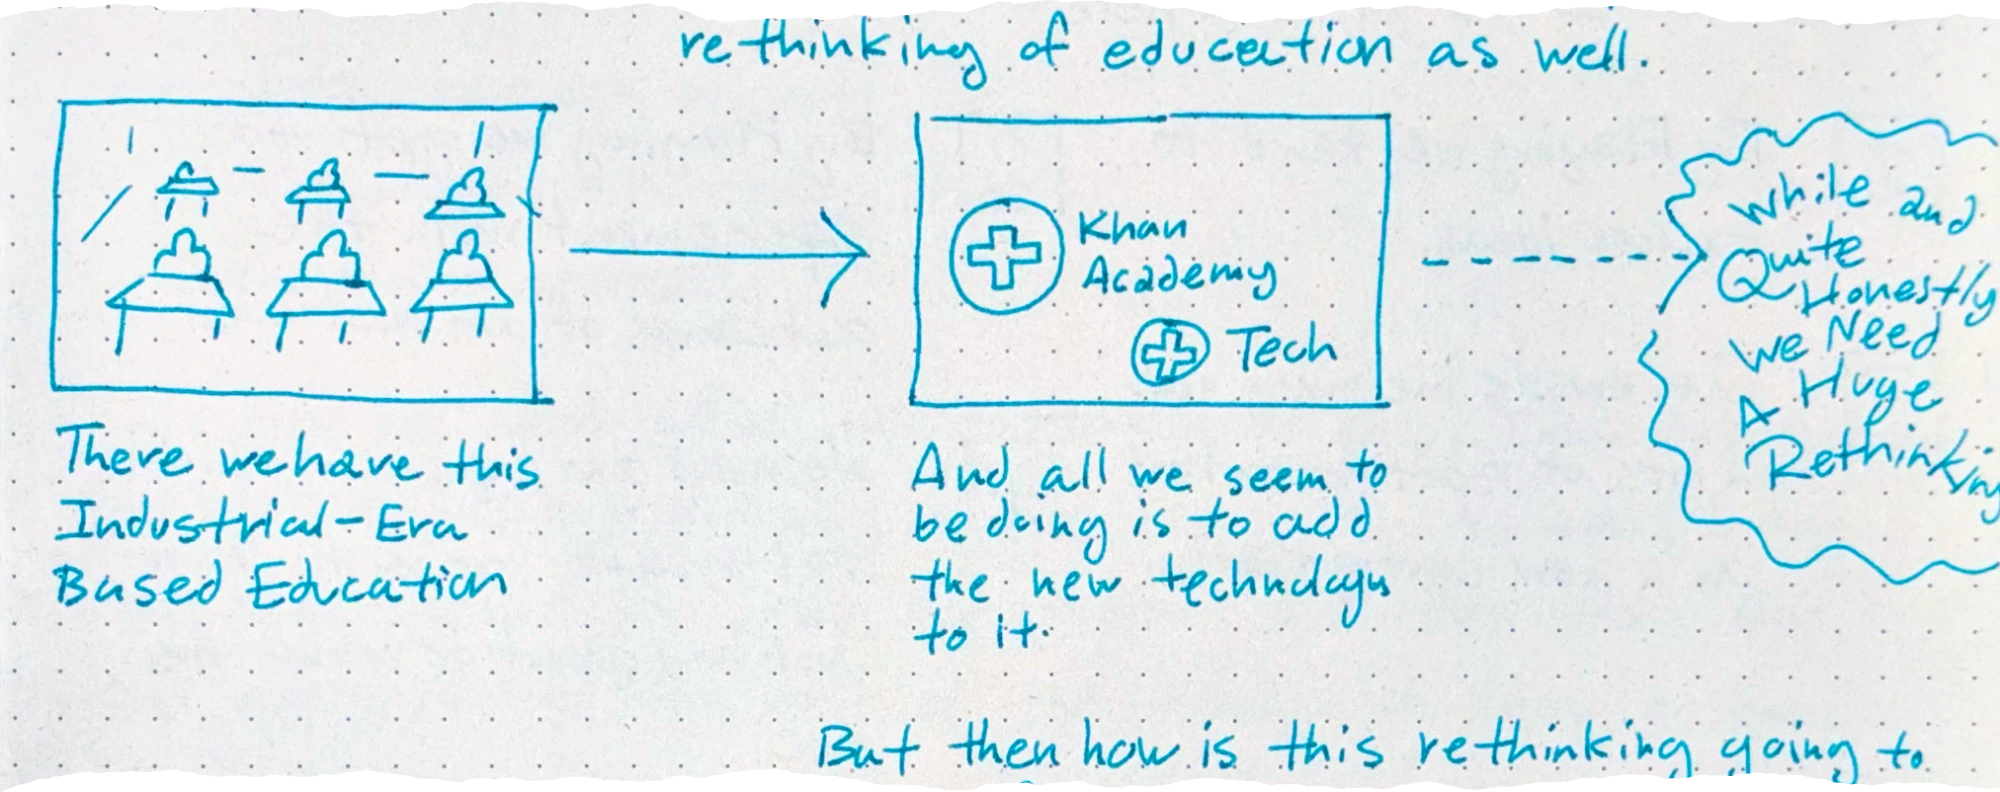 rethinking of education as well.
Khan
Academy
Tech
There we have this
Industrial-Era
Based Education
And all we seem to
be doing is to add
the new technology
to it.
While and
Quite
Honestly
We Need
A Huge
Rethinking
But then how is this rethinking going to